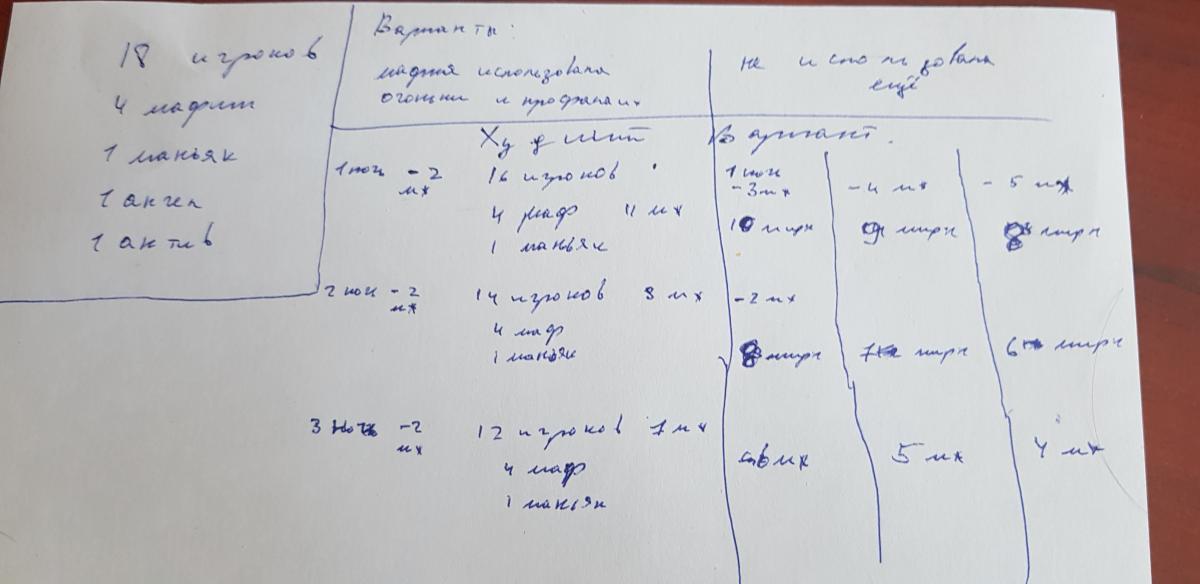 18 игроков
4 мафии
1 маньяк
1 ангел
1 антив
Варианты:
мафия использовала
и
не использовала
ещё
Худший Вариант.
1 ночь -2 мж
16 игроков
4 маф 11 мж
1 маньяк
1 ночь
-3 мж
-4 мж
-5 мж
10 мирн
9 мирн
8 мирн
2 ноч -2 мж
14 игроков 9 мж
4 маф
1 маньяк
-2 мж
8 мирн
7 мирн
6 мирн
3 ночь -2 мж
12 игроков 7 мж
4 маф
1 маньяк
6 мж
5 мж
4 мж